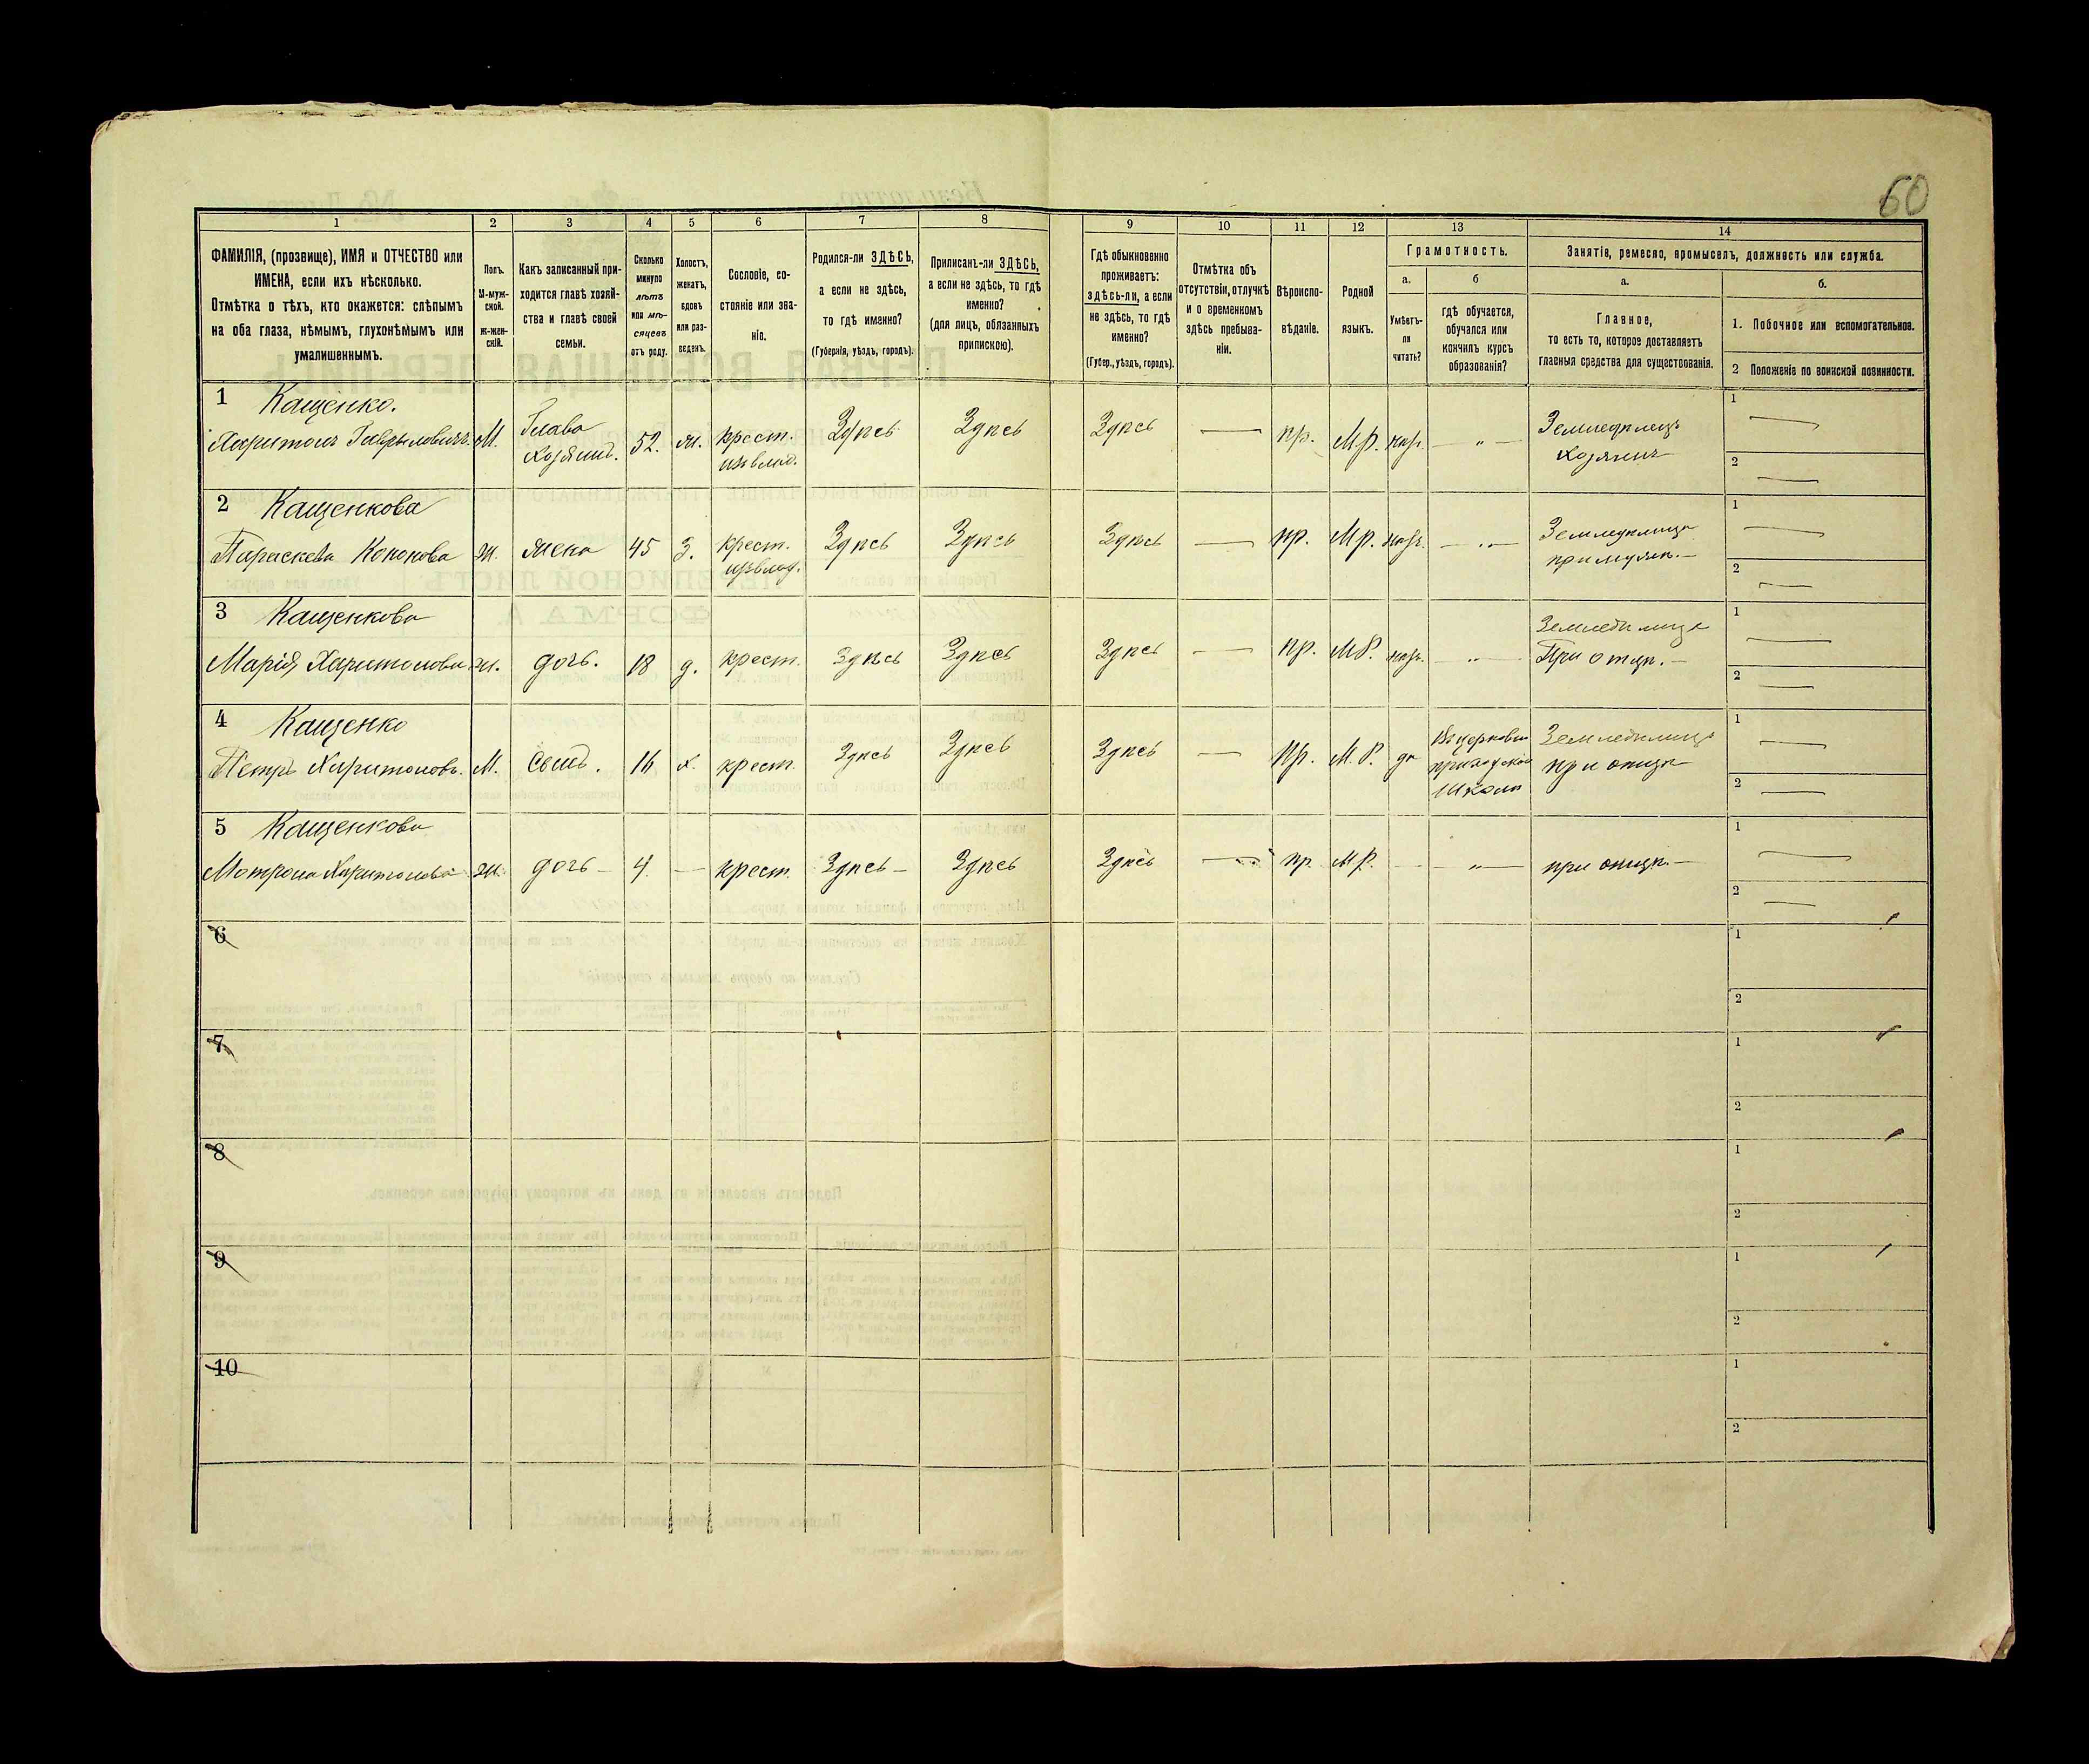 60
1 2 3 4 5 6 7 8 9 10 11 12 13 14
ФАМИЛІЯ, (прозвище), ИМЯ и ОТЧЕСТВО или
ИМЕНА, если ихъ нѣсколько.
Отмѣтка о тѣхъ, кто окажется: слѣпымъ
на оба глаза, нѣмымъ, глухонѣмымъ или
умалишеннымъ.
Полъ.
М-муж-
ской.
ж-жен-
скій.
Какъ записанный при-
ходится главѣ хозяй-
ства и главѣ своей
семьи.
Сколько
минуло
лѣтъ
или мѣ-
сяцевъ
отъ роду.
Холостъ,
женатъ,
вдовъ
или раз-
веденъ.
Сословіе, со-
стояніе или зва-
ніе.
Родился-ли ЗДѢСЬ,
а если не здѣсь,
то гдѣ именно?
(Губернія, уѣздъ, городъ).
Приписанъ-ли ЗДѢСЬ,
а если не здѣсь, то гдѣ
именно?
(для лицъ, обязанныхъ
припискою).
Гдѣ обыкновенно
проживаетъ:
здѣсь-ли, а если
не здѣсь, то гдѣ
именно?
(Губер., уѣздъ, городъ).
Отмѣтка объ
отсутствіи, отлучкѣ
и о временномъ
здѣсь пребыва-
ніи.
Вѣроиспо-
вѣданіе.
Родной
языкъ.
Грамотность.
а.
Умѣетъ-
ли
читать?
б
гдѣ обучается,
обучался или
кончилъ курсъ
образованія?
Занятіе, ремесло, промыселъ, должность или служба.
а.
Главное,
то есть то, которое доставляетъ
главныя средства для существованія.
б.
1. Побочное или вспомогательное.
2 Положеніе по воинской повинности.
1 Кащенко.
Харитонъ Гаврыловичъ М. Глава Хозяинъ. 52. ж. крест. Здѣсь Здѣсь Здѣсь — пр. М.Р. — „ — Земледѣлецъ Хозяинъ 1 — 2 —
2 Кащенкова
Параскева Кононова ж. жена 45 З. крест. Здѣсь Здѣсь Здѣсь — пр. М р. — „ — Земледѣлица при мужѣ. — 1 — 2 —
3 Кащенкова
Марія Харитонова ж. дочь. 18 д. крест. Здѣсь Здѣсь Здѣсь — пр. М Р. — „ — Земледѣлица При отцѣ. — 1 — 2 —
4 Кащенко
Петръ Харитоновъ. М. Сынъ. 16 х. крест. Здѣсь Здѣсь Здѣсь — Пр. М. Р. да Въ церковно приходской школѣ при отцѣ 1 — 2 —
5 Кащенкова
Мотрона Харитонова ж. дочь — 4. — крест. Здѣсь — Здѣсь Здѣсь — пр. М Р. — — „ — при отцѣ. — 1 — 2 —
6 1
2
7 1
2
8 1
2
9 1
2
10 1
2